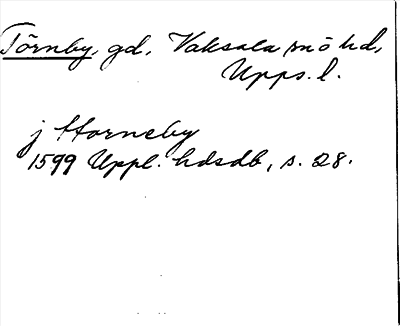 Törnby, gd, Vaksala sn o hd,
Upps. l.
j Horneby
1599 Uppl. hdsdb, s. 28.